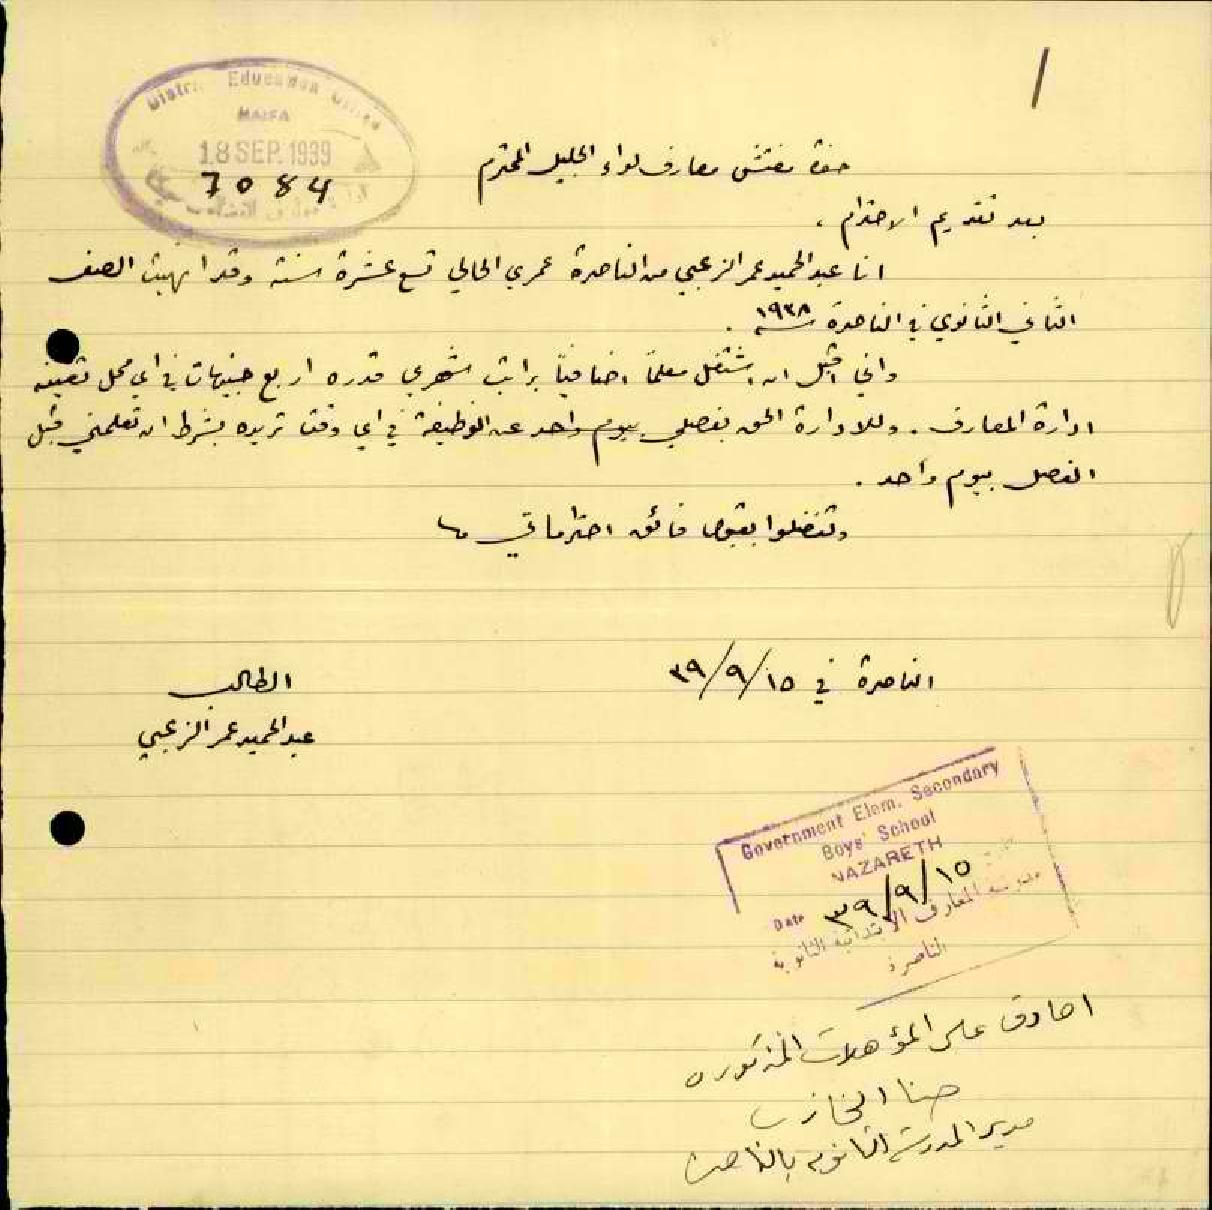 ١
District Education Office
HAIFA
18 SEP. 1939
7084
حضرة مفتش معارف لواء الجليل المحترم
بعد تقديم الاحترام ،
انا عبد الحميد عمر الزعبي من الناصرة عمري الحالي تسع عشرة سنة وقد انهيت الصف
الثاني الثانوي في الناصرة سنة ١٩٣٨ .
واني اقبل ان اشتغل معلماً اضافياً براتب شهري قدره اربع جنيهات في اي محل تعينه
ادارة المعارف . وللادارة الحق بفصلي بيوم واحد عن الوظيفة في اي وقت تريده بشرط ان تعلمني قبل
الفصل بيوم واحد .
وتفضلوا بقبول فائق احتراماتي
الناصرة في ١٥/٩/٣٩
الطالب
عبد الحميد عمر الزعبي
Government Elem. Secondary
Boys' School
NAZARETH
Date ١٥/٩/٣٩
مدرسة المعارف الابتدائية الثانوية
الناصرة
اصادق على المؤهلات المذكوره
حنا الخازن
مدير المدرسة الثانوية بالناصرة